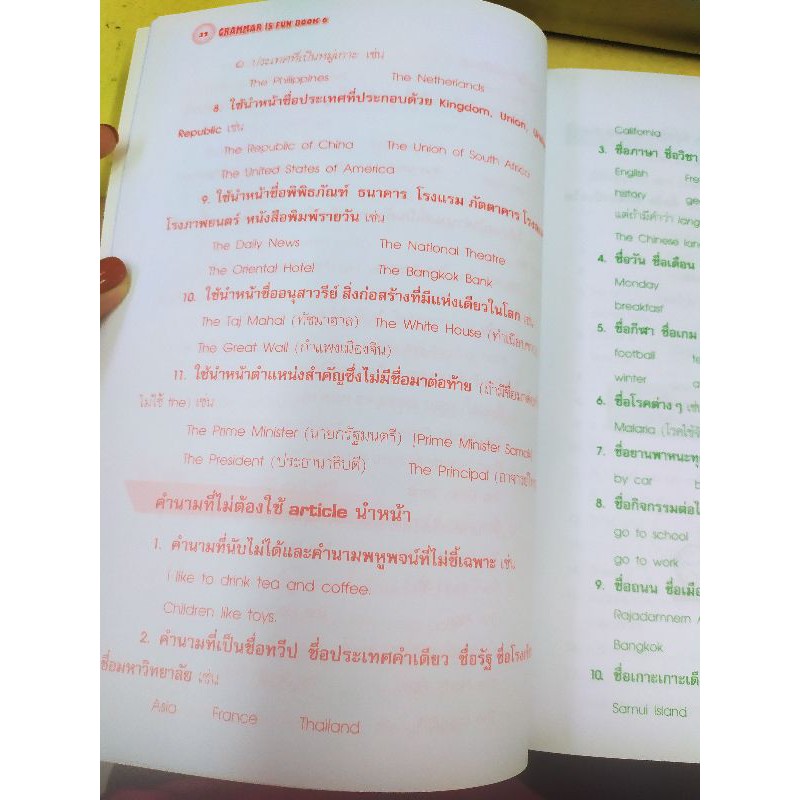 GRAMMAR IS FUN BOOK 6
ประเทศที่เป็นหมู่เกาะ เช่น
The Philippines The Netherlands
8. ใช้นำหน้าชื่อประเทศที่ประกอบด้วย Kingdom, Union,
Republic เช่น
The Republic of China The Union of South Africa
The United States of America
9. ใช้นำหน้าชื่อพิพิธภัณฑ์ ธนาคาร โรงแรม ภัตตาคาร
โรงภาพยนตร์ หนังสือพิมพ์รายวัน เช่น
The Daily News The National Theatre
The Oriental Hotel The Bangkok Bank
10. ใช้นำหน้าชื่ออนุสาวรีย์ สิ่งก่อสร้างที่มีแห่งเดียวในโลก เช่น
The Taj Mahal (ทัชมาฮาล) The White House
The Great Wall (กำแพงเมืองจีน)
11. ใช้นำหน้าตำแหน่งสำคัญซึ่งไม่มีชื่อมาต่อท้าย
ไม่ใช้ the) เช่น
The Prime Minister (นายกรัฐมนตรี) [Prime Minister Samak
The President (ประธานาธิบดี) The Principal
คำนามที่ไม่ต้องใช้ article นำหน้า
1. คำนามที่นับไม่ได้และคำนามพหูพจน์ที่ไม่ชี้เฉพาะ เช่น
I like to drink tea and coffee.
Children like toys.
2. คำนามที่เป็นชื่อทวีป ชื่อประเทศคำเดียว ชื่อรัฐ
ชื่อมหาวิทยาลัย เช่น
Asia France Thailand
California
3. ชื่อภาษา ชื่อวิชา
English
history
แต่ถ้ามีคำว่า
The Chinese
4. ชื่อวัน ชื่อเดือน
Monday
breakfast
5. ชื่อกีฬา ชื่อเกม
football
winter
6. ชื่อโรคต่าง ๆ เช่น
Malaria
7. ชื่อยานพาหนะ
by car
8. ชื่อกิจกรรม
go to school
go to work
9. ชื่อถนน ชื่อเมือง
Rajadamnern
Bangkok
10. ชื่อเกาะ
Samui Island